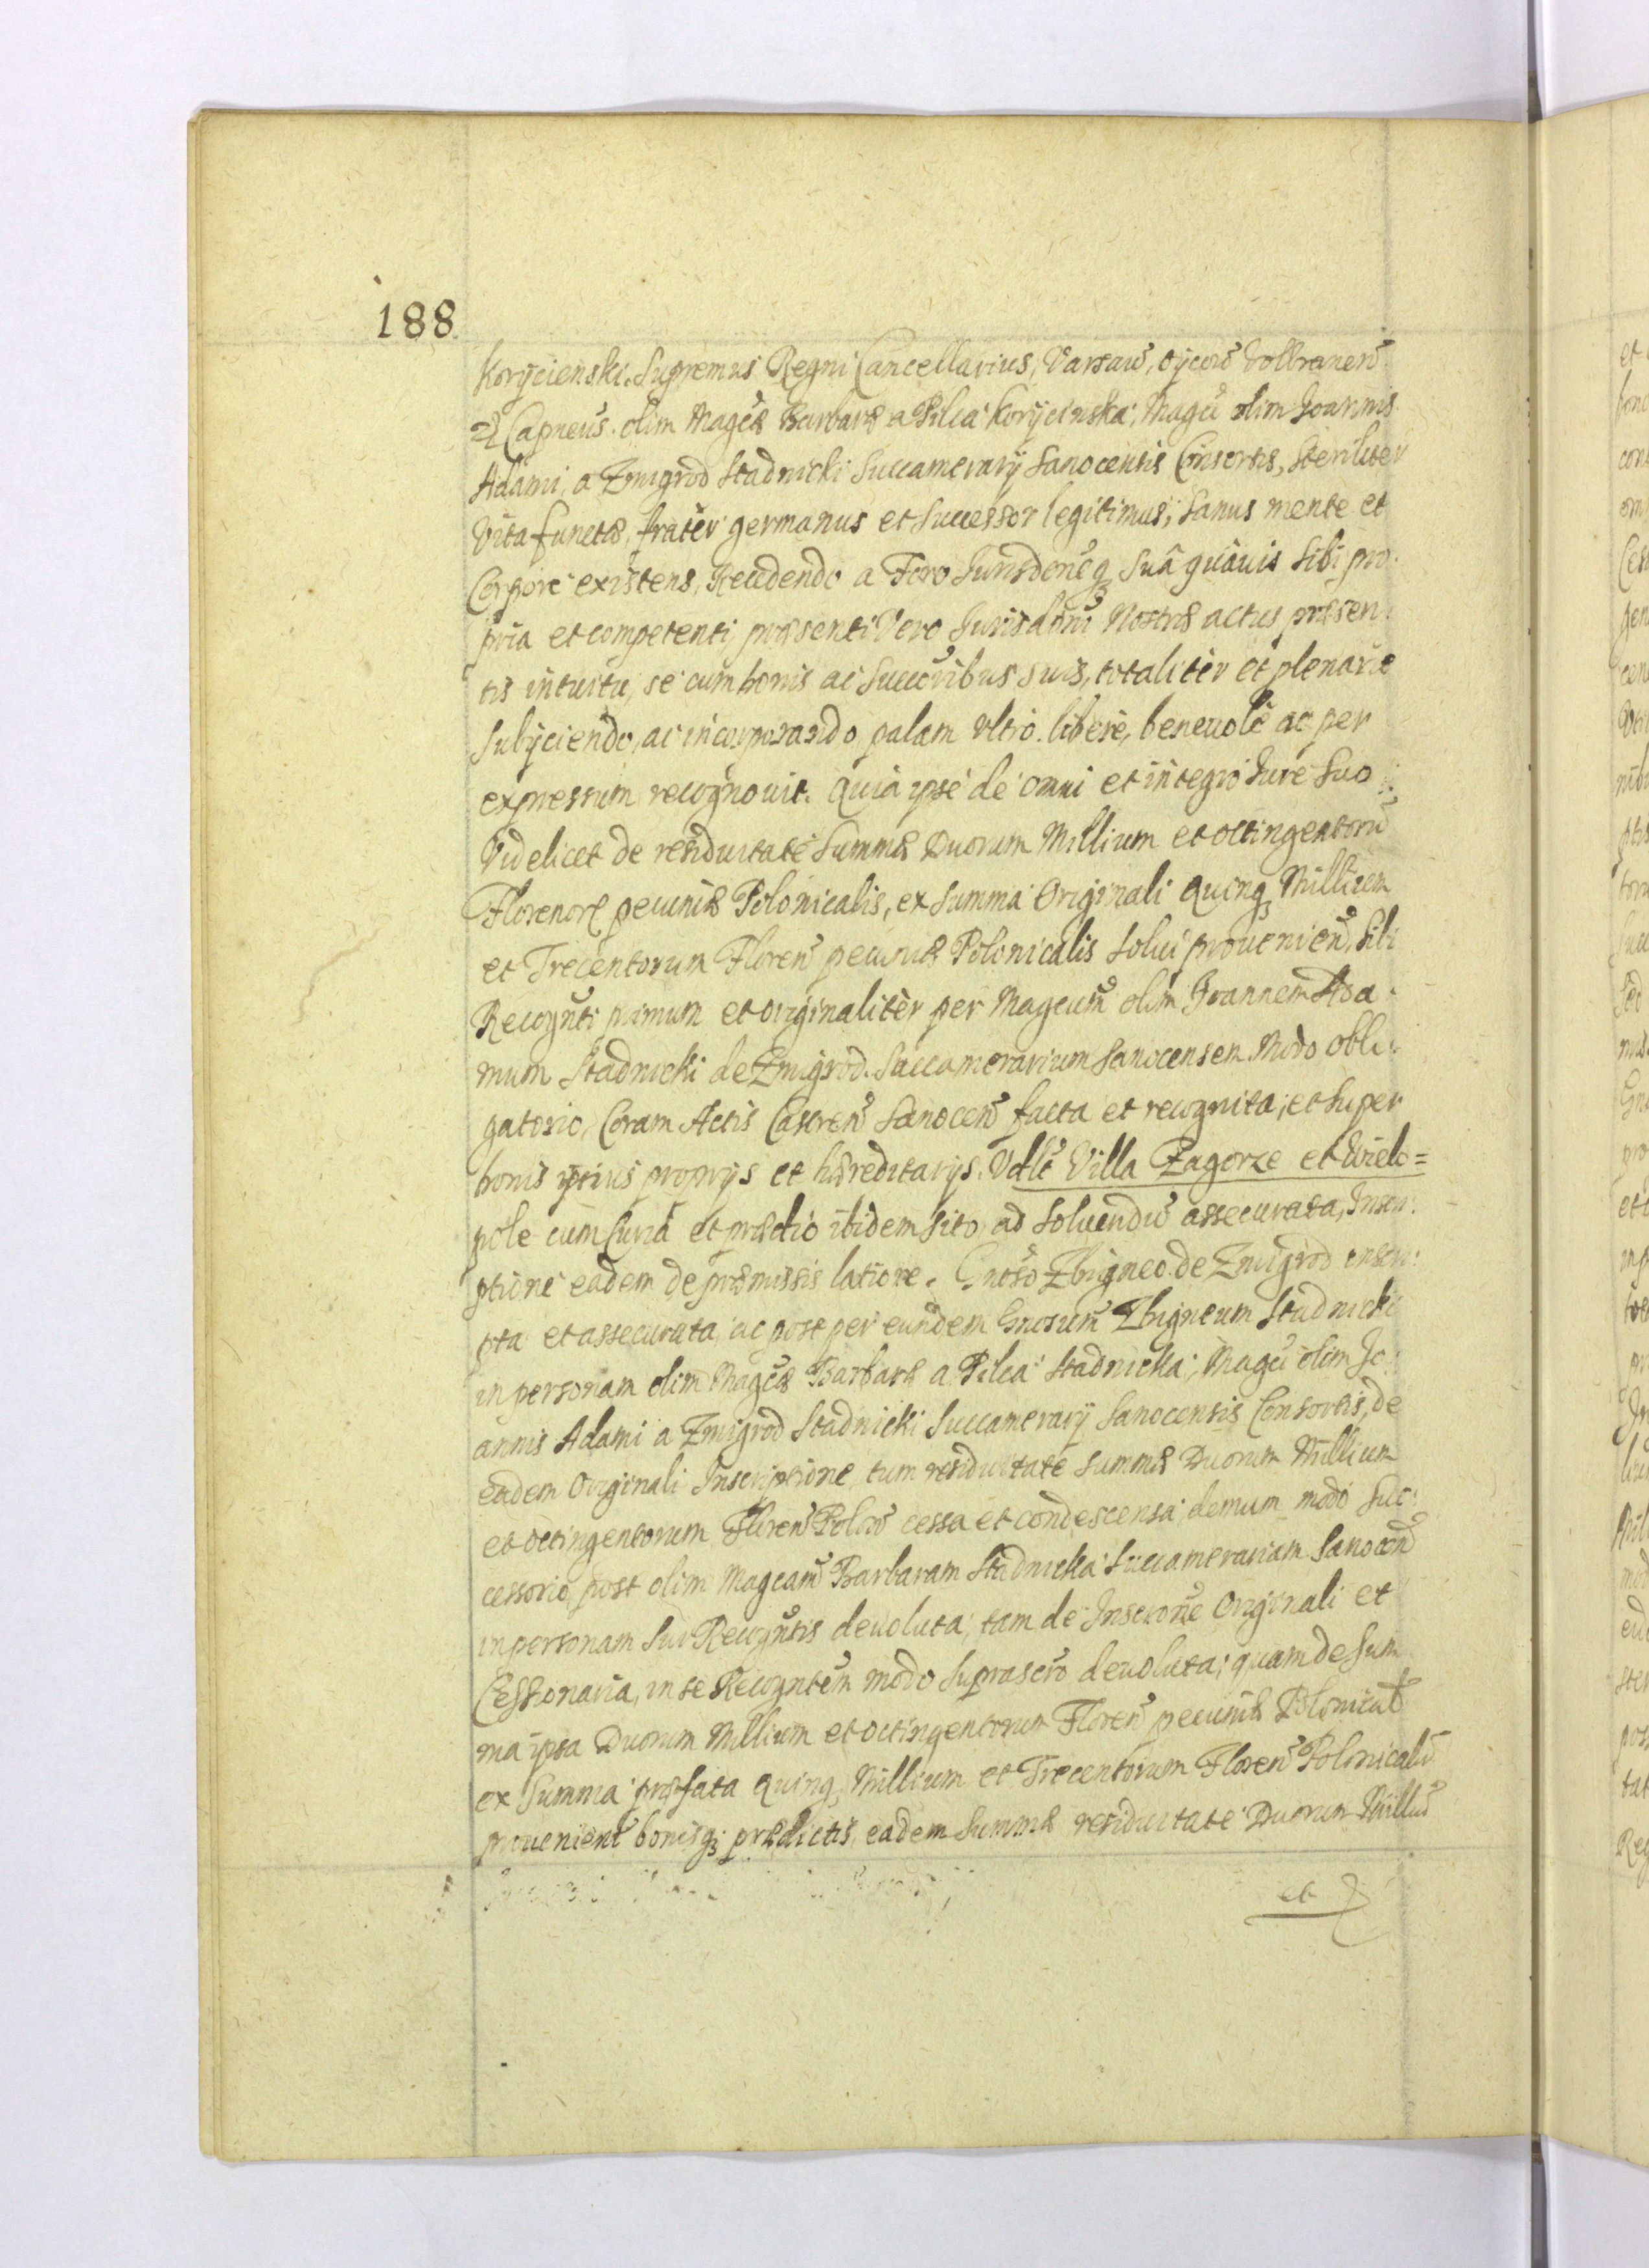 188
Korycienski. Supremus Regni Cancellarius, Varsavien, Oycovien Volbramen
Capneus. olim Magcæ Barbaræ a Pilca Korycinska, Magci olim Joannis
Adami, a Zmigrod Stadnicki Succamerarij Sanocensis Consortis, Steriliter
Vita functæ, frater germanus et Successor legitimus, Sanus mente et
Corpore existens, Recedendo a Foro Jurisdoneq Suâ quâuis Sibi pro:
pria et competenti, præsenti Vero Jurisdoni Nostræ actus præsen:
tis intuitu, se cum bonis ac Succribus suis, totaliter et plenarie
Subijciendo, ac incorporando palam Vltro. libere, beneuole ac per
expressum recognouit. Quia ipse de omni et integro Jure Suo
Videlicet de residuitate Summæ Duorum Millium et octingentorū
Florenor pecuniæ Polonicalis, ex Summa Originali Quinq Millium
et Trecentorum Floren pecuniæ Polonicalis Solui prouenien, Sibi
Recognti primum et originaliter per Magcum olim Joannem Ada:
mum Stadnicki de Zmigrod. Succamerarium Sanocensem Modo obli:
gatorio, Coram Actis Castren Sanocen facta et recognita, et Super
bonis ipsius proprijs et hæreditarijs. Vdlt Villa Zagorze et Wielo=
pole cum Curia et prædio ibidem sito, ad Soluendū assecurata, Inscri:
ptione eadem de præmissis latiore. Gnoso Zbigneo de Zmigrod inscri:
pta et assecurata, ac post per eundem Gnosum Zbigneum Stadnicki
in personam olim Magcæ Barbaræ a Pilca Stadnicka, Magci olim Jo:
annis Adami a Zmigrod Stadnicki Succamerarij Sanocensis Consortis, de
eadem Originali Inscriptione, tum residuitate Summæ Duorum Millium
et octingentorum Floren Polon cessa et condescensa, demum modo Suc:
cessorio, post olim Magcam Barbaram Stadnicka Succamerariam Sanocen
in personam Sui Recogntis deuoluta, tam de Inscrone Originali et
Cessionaria, in se Recogntem modo Suprascro deuoluta, quam de Sum
ma ipsa Duorum Millium et octingentorum Floren pecuniæ Polonical
ex Summa præfata Quinq Millium et Trecentorum Floren Polonicaliū
prouenient bonisq prædictis, eadem Summæ residuitate Duorum Milliū
et